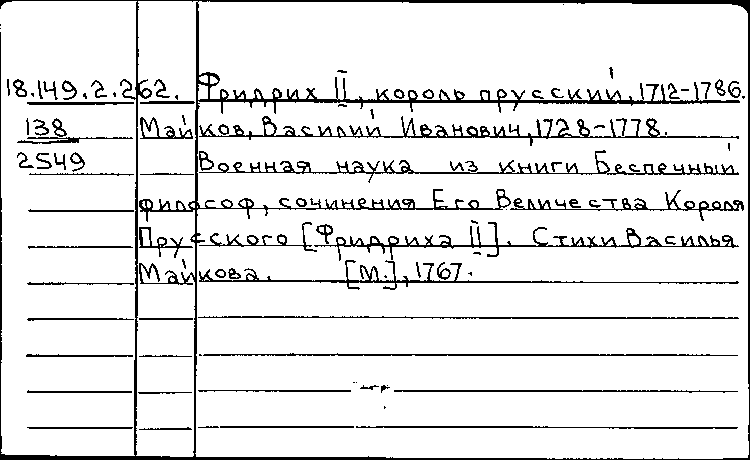 18.149.2.262. Фридрих II, король прусский, 1712-1786.
138 Майков, Василий Иванович, 1728-1778.
2549 Военная наука из книги Беспечный
философ, сочинения Его Величества Короля
Прусского [Фридриха II]. Стихи Василья
Майкова. [М.], 1767.